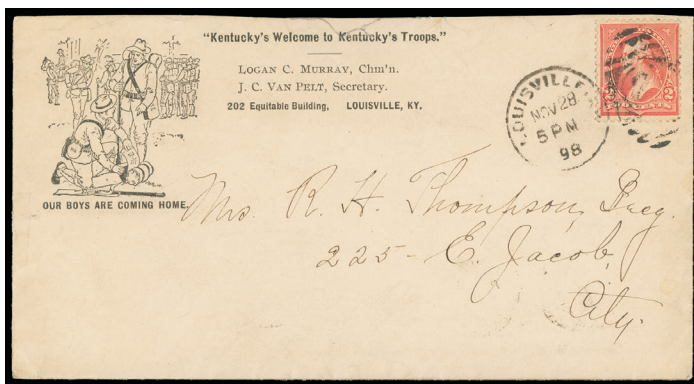 "Kentucky's Welcome to Kentucky's Troops."
LOGAN C. MURRAY, Chm'n.
J. C. VAN PELT, Secretary.
202 Equitable Building, LOUISVILLE, KY.
OUR BOYS ARE COMING HOME.
LOUISVILLE
NOV 28
5 PM
98
2 2
Mrs. R. H. Thompson,
225 - E. Jacob,
City.